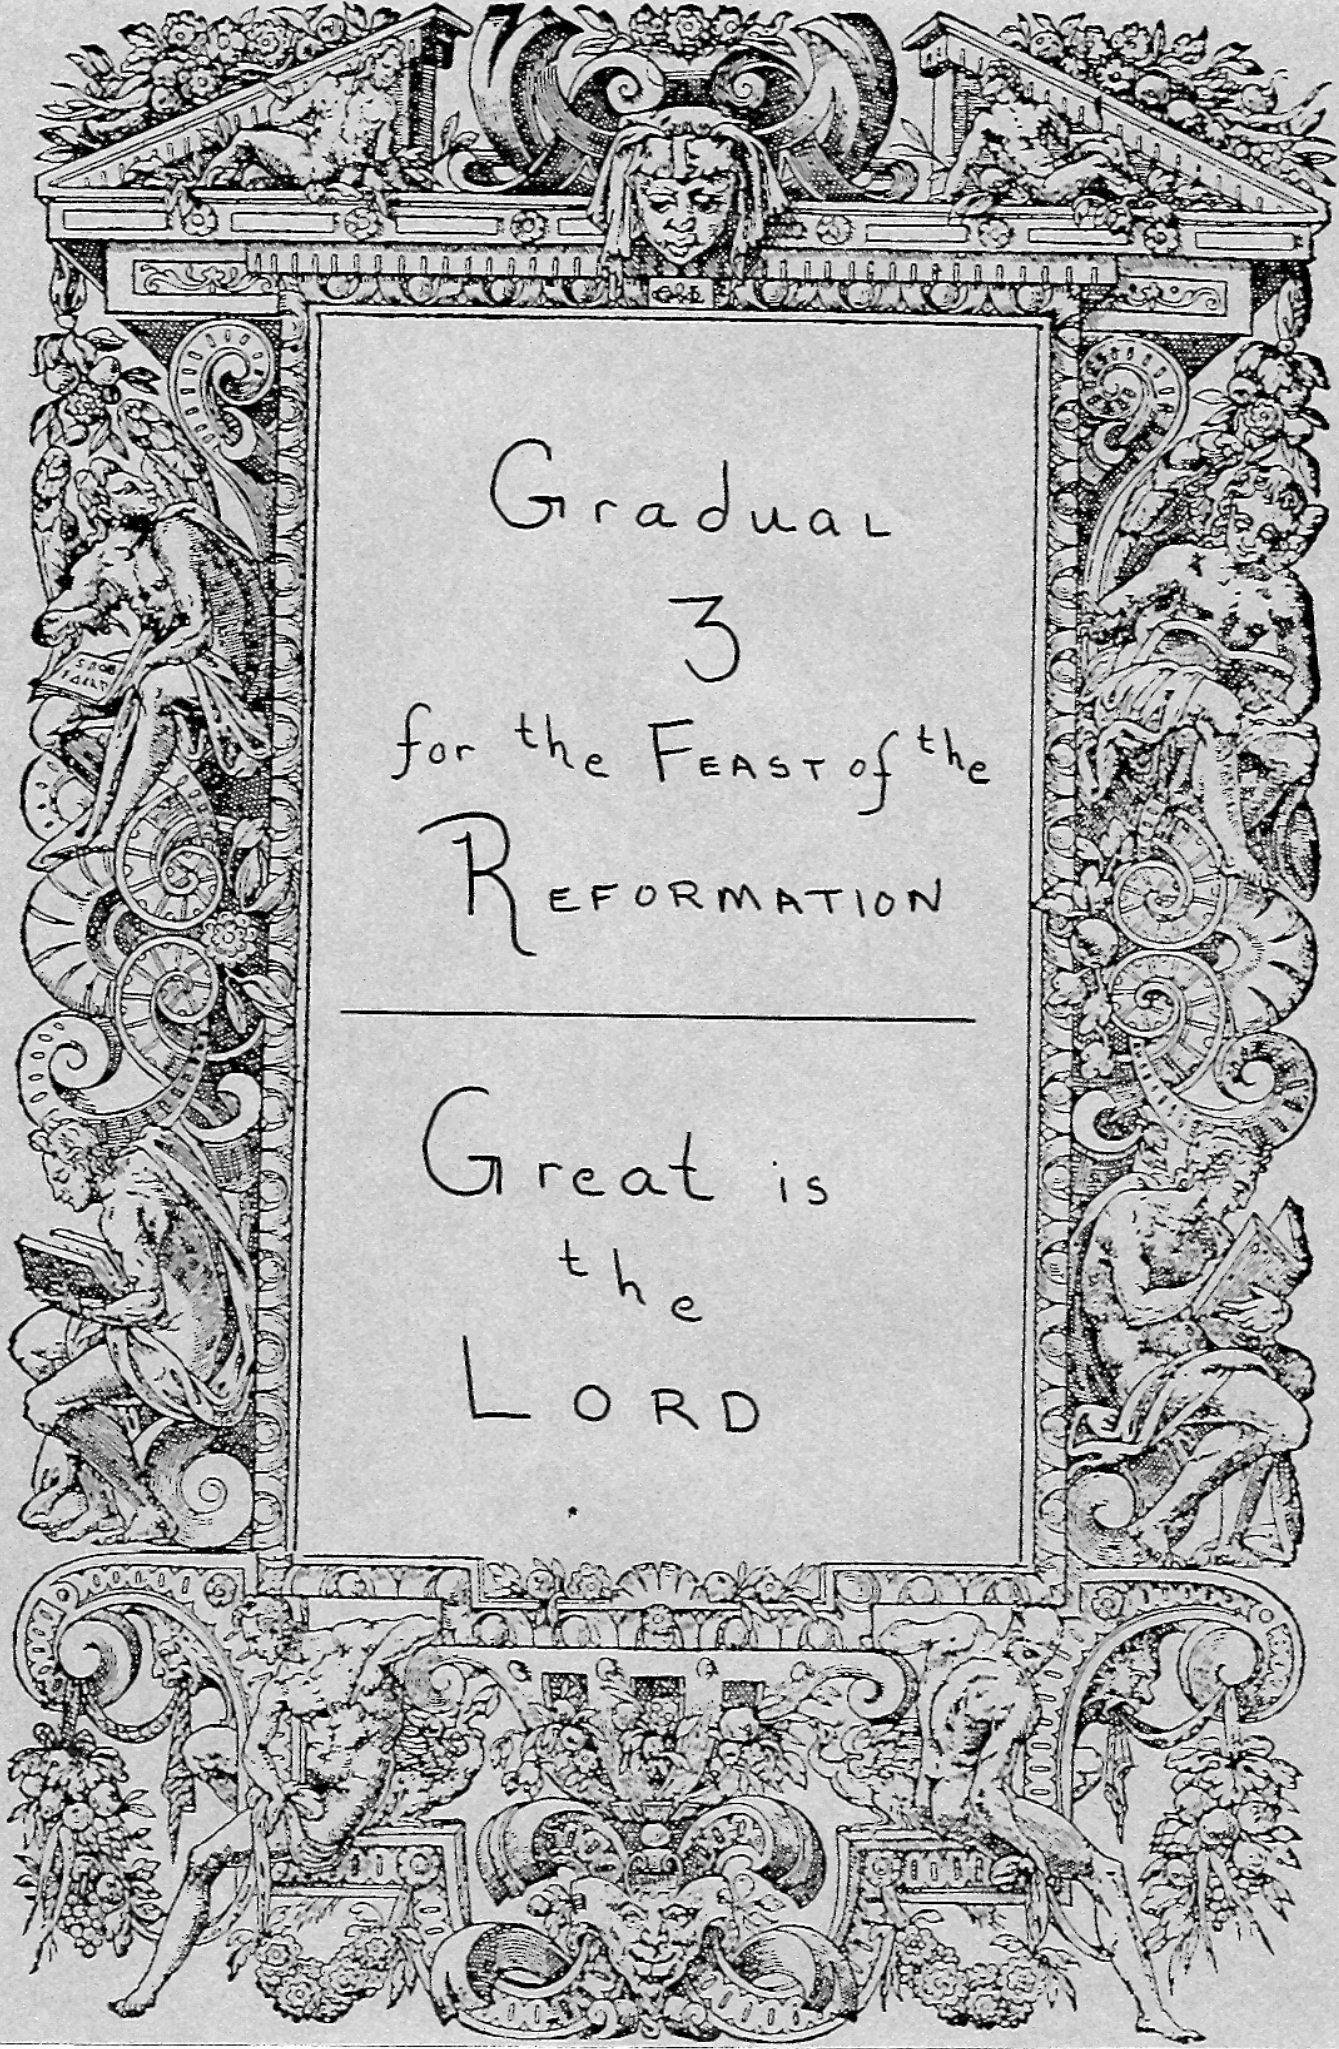 Gradual
3
for the Feast of the
Reformation
Great is
the
Lord